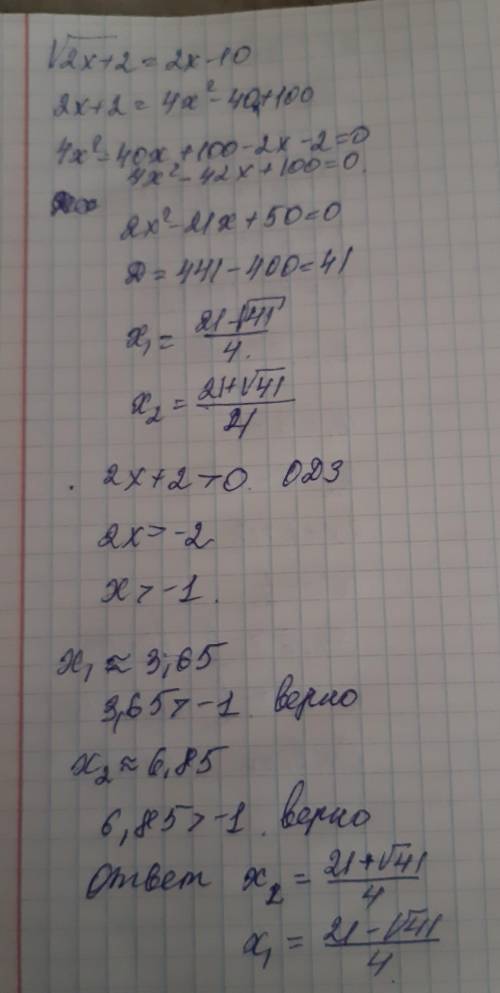 √2x+2 = 2x-10
2x+2 = 4x²-40+100
4x²-40x+100-2x-2=0
4x²-42x+100=0.
2x²-21x+50=0
D = 441-400=41
x₁ = (21-√41)/4.
x₂ = (21+√41)/4
. 2x+2>0. ОДЗ
2x>-2
x>-1.
x₁ ≈ 3,65
3,65>-1. верно
x₂ ≈ 6,85
6,85>-1. верно
Ответ x₂ = (21+√41)/4
x₁ = (21-√41)/4.